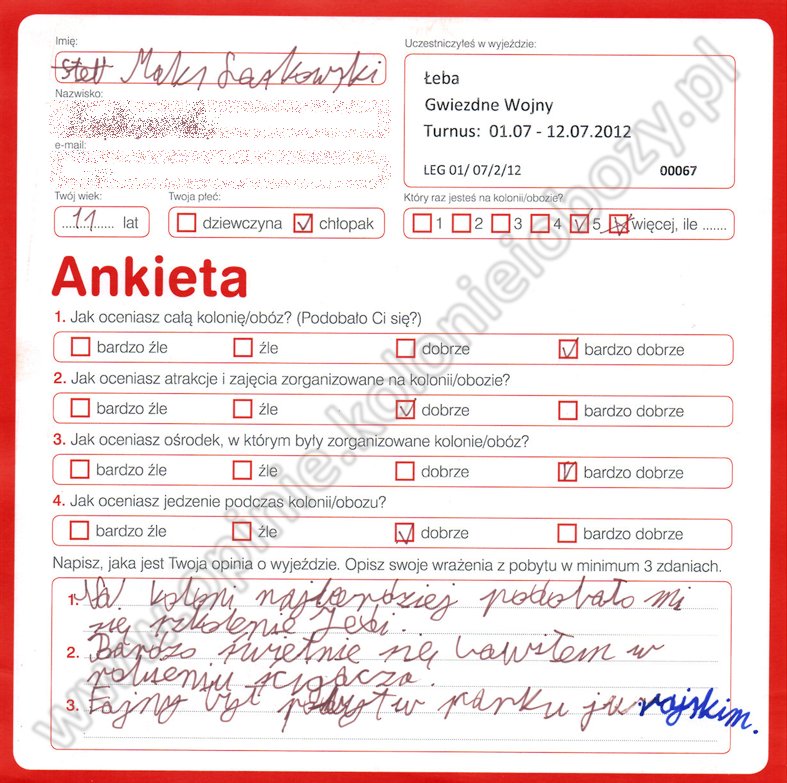 Imię:
Stell Maks Laskowski
Nazwisko:
e-mail:
Twój wiek:
11 lat
Twoja płeć:
dziewczyna chłopak
Uczestniczyłeś w wyjeździe:
Łeba
Gwiezdne Wojny
Turnus: 01.07 - 12.07.2012
LEG 01/ 07/2/12 00067
Który raz jesteś na kolonii/obozie?
1 2 3 4 5 więcej, ile .......
Ankieta
1. Jak oceniasz całą kolonię/obóz? (Podobało Ci się?)
bardzo źle źle dobrze bardzo dobrze
2. Jak oceniasz atrakcje i zajęcia zorganizowane na kolonii/obozie?
bardzo źle źle dobrze bardzo dobrze
3. Jak oceniasz ośrodek, w którym były zorganizowane kolonie/obóz?
bardzo źle źle dobrze bardzo dobrze
4. Jak oceniasz jedzenie podczas kolonii/obozu?
bardzo źle źle dobrze bardzo dobrze
Napisz, jaka jest Twoja opinia o wyjeździe. Opisz swoje wrażenia z pobytu w minimum 3 zdaniach.
1. Na koloni najbardziej podobało mi
się szkolenie Jedi.
2. Bardzo świetnie się bawiłem w
robieniu ścigacza.
3. Fajny był pobyt w parku jurajskim.
www.opinie.kolonieiobozy.pl